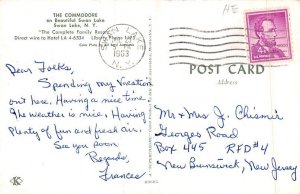 THE COMMODORE
on Beautiful Swan Lake
Swan Lake, N. Y.
"The Complete Family Resort"
Direct wire to Hotel LA 4-6334 Liberty Phone
SWAN LAKE
1963
N.Y.
AE
POST CARD
Address
Dear Folks,
Spending my vacation
out here. Having a nice time.
The weather is nice. Having
Plenty of fun and fresh air.
See you soon
Regards,
Frances
Mr & Mrs J. Chismir
Georges Road
Box 445 RFD #4
New Brunswick, New Jersey
K